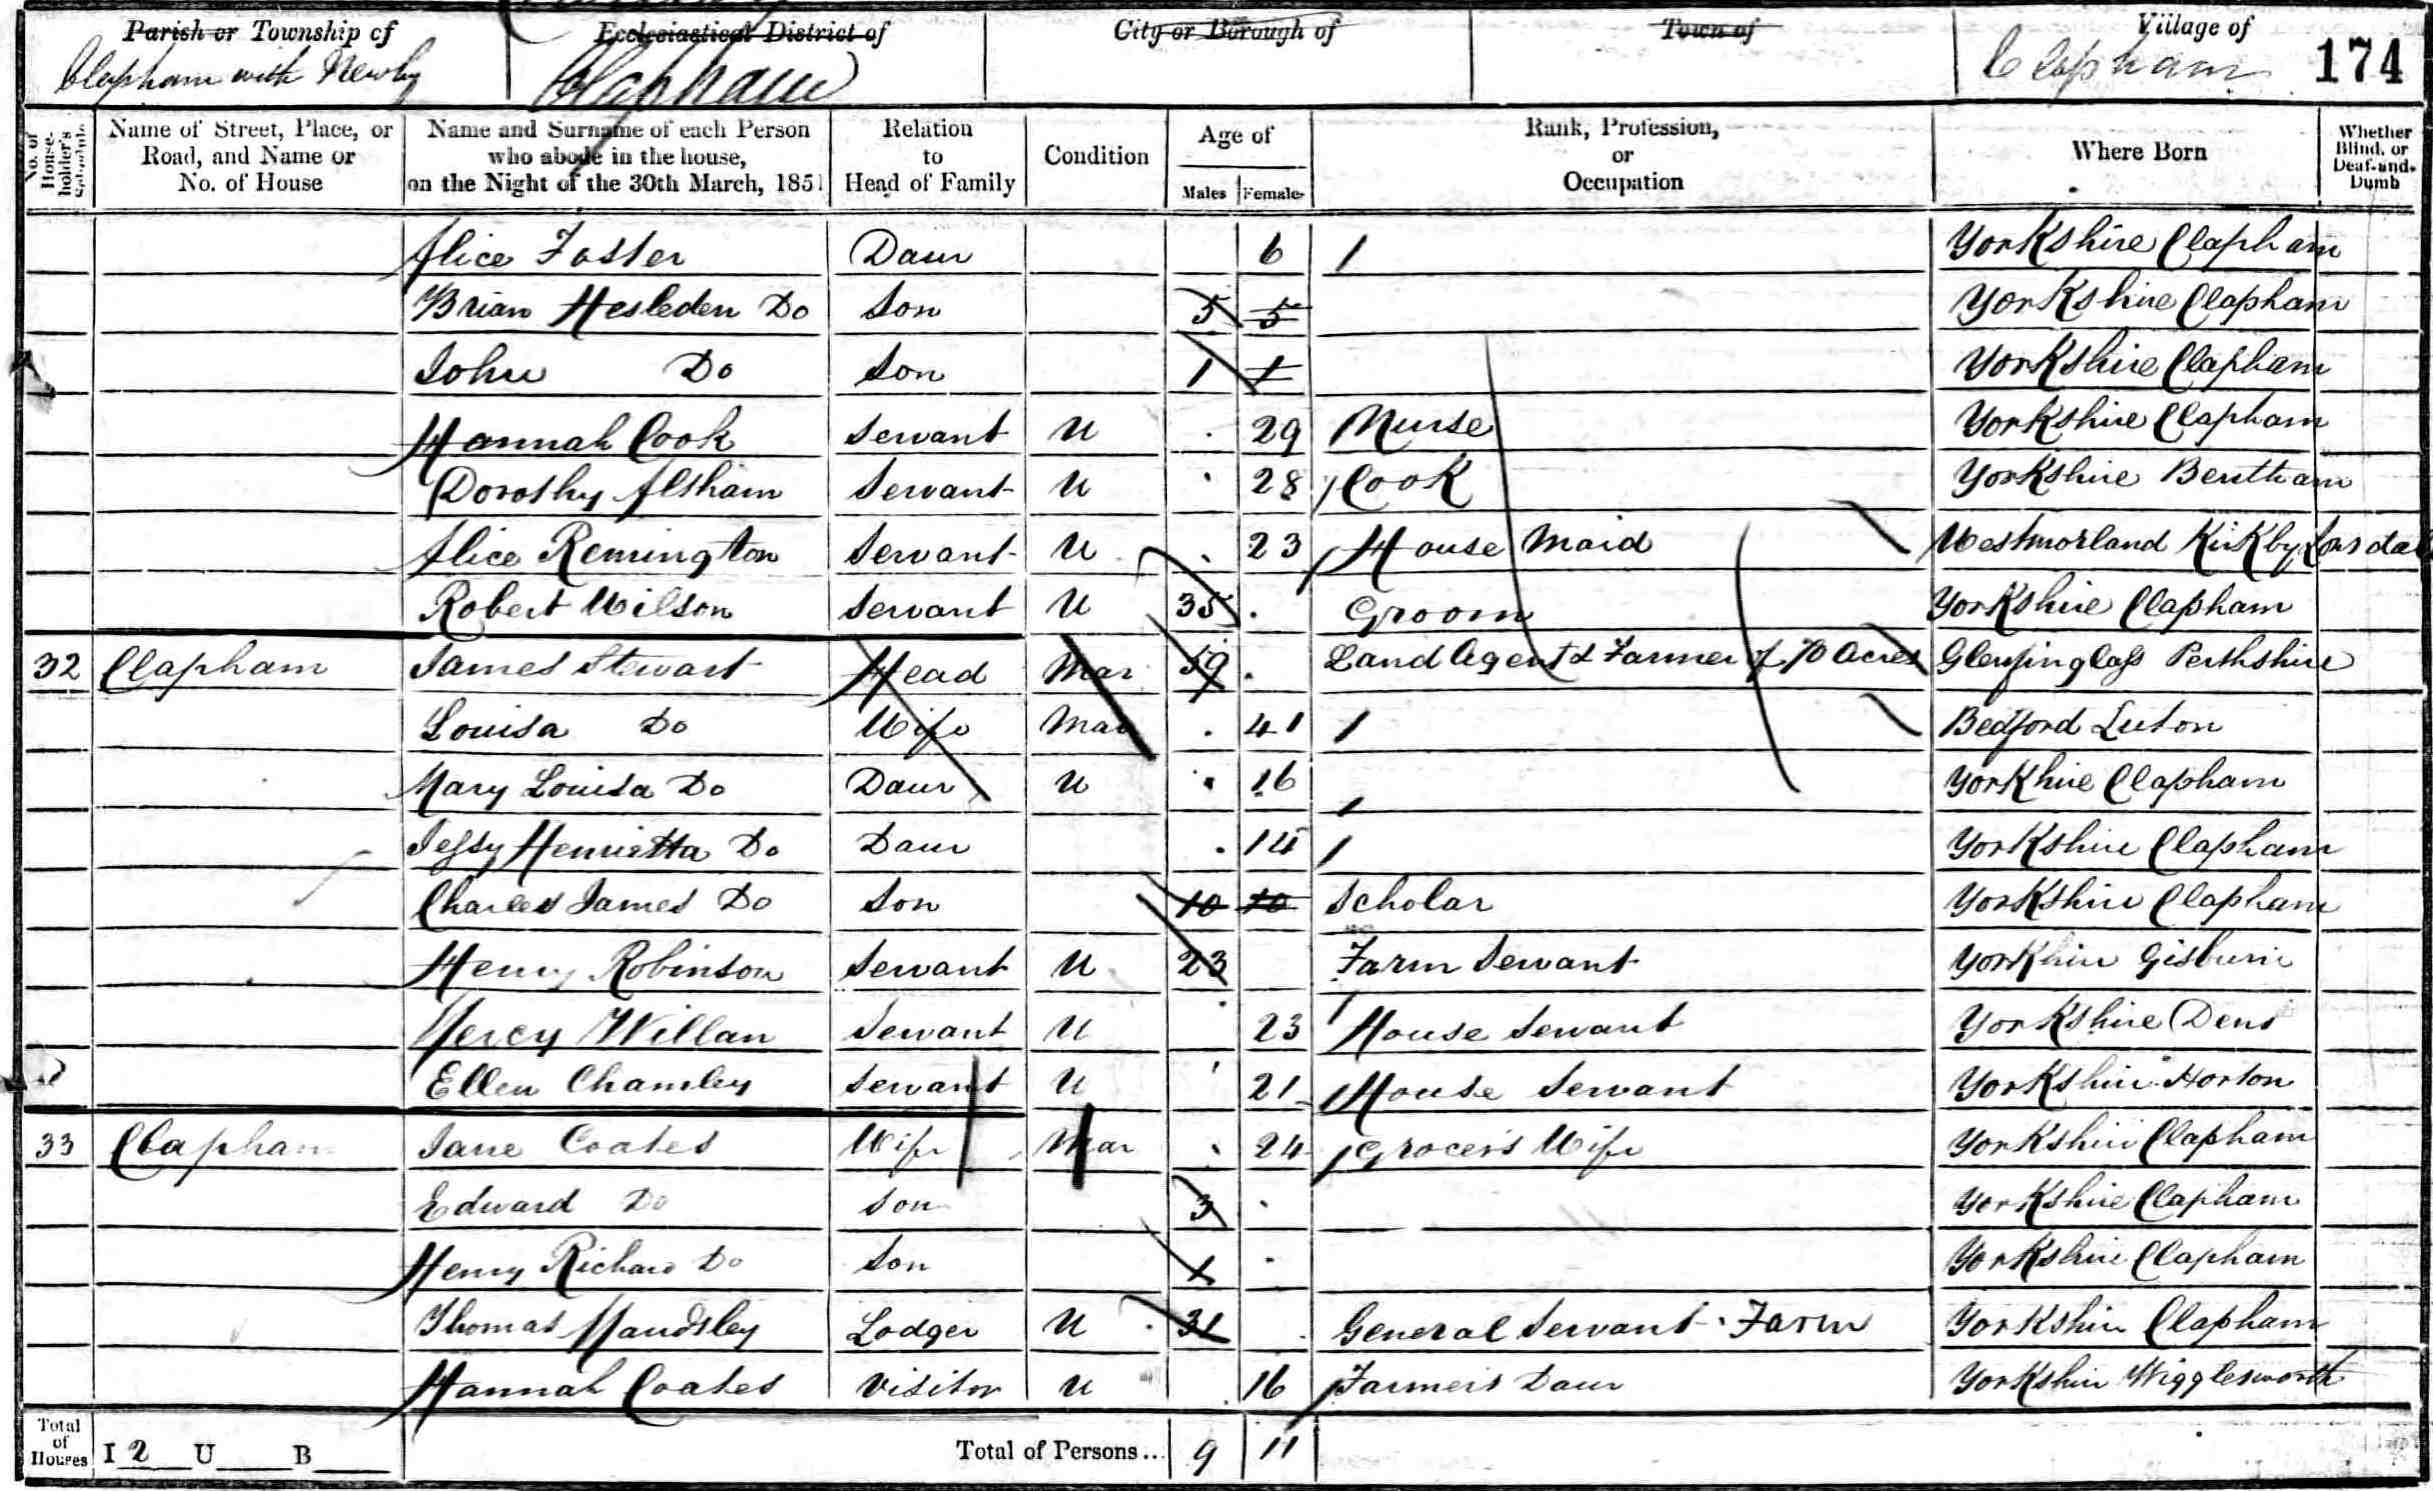 Parish or Township of
Clapham with Newby
Ecclesiastical District of
Clapham
City or Borough of
Town of
Village of
Clapham
174
No. of House-holder's Schedule
Name of Street, Place, or Road, and Name or No. of House
Name and Surname of each Person who abode in the house, on the Night of the 30th March, 1851
Relation to Head of Family
Condition
Age of
Males
Females
Rank, Profession, or Occupation
Where Born
Whether Blind, or Deaf-and-Dumb
Alice Foster Daur 6 Yorkshire Clapham
Brian Hesleden Do Son 5 5 Yorkshire Clapham
John Do Son 1 1 Yorkshire Clapham
Hannah Cook Servant U 29 Nurse Yorkshire Clapham
Dorothy Servant U 28 Cook Yorkshire Bentham
Alice Remington Servant U 23 House Maid Westmorland Kirkby Lonsdale
Robert Wilson Servant U 35 Groom Yorkshire Clapham
32 Clapham James Stewart Head Mar 59 Land Agent & Farmer of 70 Acres Perthshire
Louisa Do Wife Mar 41 Bedford Luton
Mary Louisa Do Daur U 16 Yorkhire Clapham
Jessy Henrietta Do Daur 14 Yorkshire Clapham
Charles James Do Son 10 10 Scholar Yorkshire Clapham
Henry Robinson Servant U 23 Farm Servant Yorkhire Gisburn
Mercy Willan Servant U 23 House Servant Yorkshire Dent
Ellen Chamley Servant U 21 House Servant Yorkshire Horton
33 Clapham Jane Coates Wife Mar 24 Grocers Wife Yorkshire Clapham
Edward Do Son 3 Yorkshire Clapham
Henry Richard Do Son 1 Yorkshire Clapham
Thomas Maudsley Lodger U 31 General Servant Farm Yorkshire Clapham
Hannah Coates Visitor U 16 Farmers Daur Yorkshire Wigglesworth
Total of Houses I 2 U B Total of Persons... 9 11